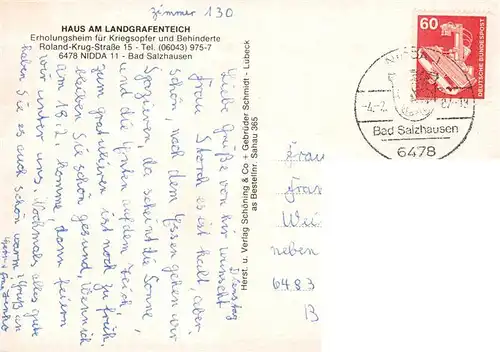 Zimmer 130
HAUS AM LANDGRAFENTEICH
Erholungsheim für Kriegsopfer und Behinderte
Roland-Krug-Straße 15 - Tel. (06043) 975-7
6478 NIDDA 11 - Bad Salzhausen
Dienstag
Liebe Grüße von hier wünscht
Frau Storch es ist kalt, aber
schön, nach dem Essen gehen wir
spazieren, da scheint die Sonne,
und die Enten auf dem Teich,
zum gratulieren ist noch zu früh,
bleiben Sie schön gesund, wenn ich
am 18.2. komme, dann feiern
wir unter uns, Nochmals alles gute
haben Sie es auch schön warm? Gruß an
Herst. u. Verlag Schöning & Co + Gebrüder Schmidt - Lübeck
as Bestellnr. Sahau 365
60
DEUTSCHE BUNDESPOST
Bad Salzhausen
6478
Frau
neben
6483
B